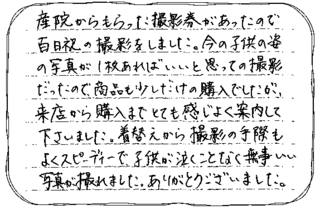 産院からもらった撮影券があったので
百日祝の撮影をしました。今の子供の姿
の写真が1枚あればいいと思っての撮影
だったので商品も少しだけの購入でしたが、
来店から購入までとても感じよく案内して
下さいました。着替えから撮影の手際も
よくスピーディーで子供が泣くことなく無事いい
写真が撮れました。ありがとうございました。